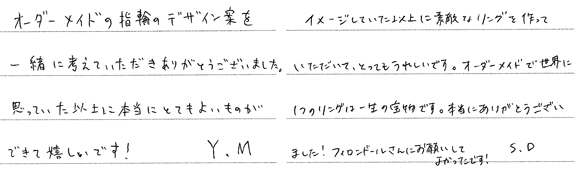 オーダーメイドの指輪のデザイン案を
一緒に考えていただきありがとうございました。
思っていた以上に本当にとてもよいものが
できて嬉しいです! Y.M
イメージしていた以上に素敵なリングを作って
いただいて、とってもうれしいです。オーダーメイドで世界に
1つのリングは一生の宝物です。本当にありがとうござい
ました!フィロンドールさんにお願いして
よかったです! S.O